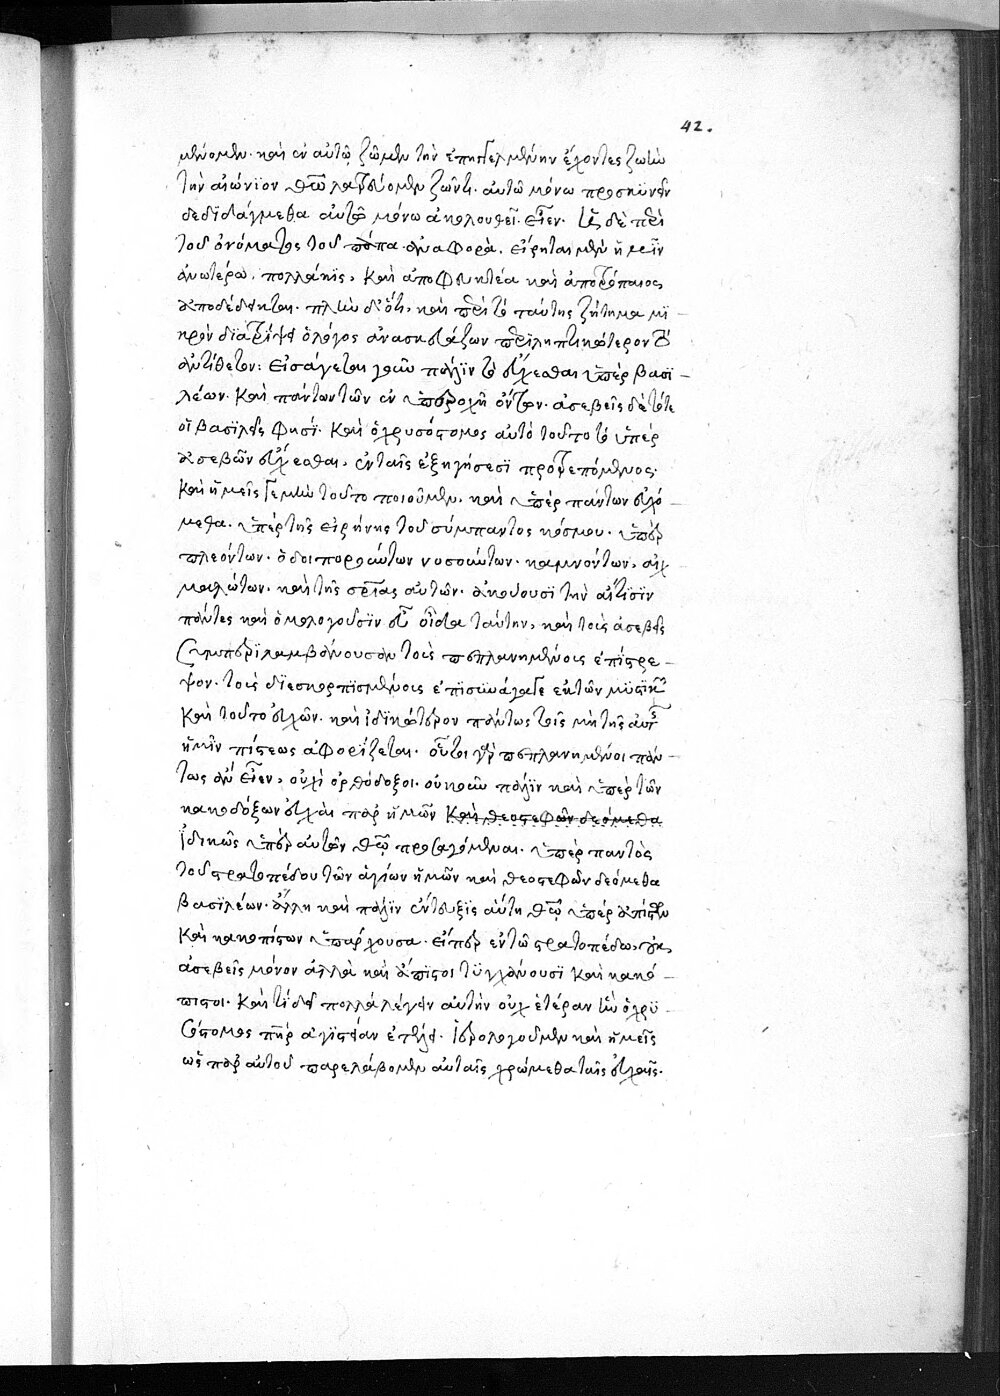 42.
μένομεν. καὶ ἐν αὐτῷ ζῶμεν τὴν ἐπηγγελμένην ἔχοντες ζωὴν
τὴν αἰώνϊον θεῷ λατρεύομεν ζῶντι. αὐτῷ μόνω προσκϋνεῖν
δεδϊδάγμεθα αὐτῷ μόνω ἀκολουθεῖν. εἶεν. ἡ δὲ περὶ
τοῦ ὀνόματος τοῦ πάπα ἀναφορὰ. εἴρηται μὲν ἡμῖν
ἀνωτέρω. πολλάκϊς, καὶ ἀποφευκτέα καὶ ἀποτρόπαιος
ἀποδέδεικται. πλὴν διότι, καὶ περὶ τὸ ταύτης ζήτημα μϊ-
κρὸν δϊατρίψει ὁ λόγος ἀνασκευάζων περϊληπτικώτερον τὸ
ἀντίθετον: Εἰσάγεται γοῦν πάλϊν τὸ εὔχεσθαι ὑπὲρ βασϊ-
λέων. Καὶ πάντων τῶν ἐν ὑπεροχῆ ὄντων. ἀσεβεῖς δὲ τότε
οἱ βασϊλεῖς φησϊ. Καὶ ὁ χρυσόστομος αὐτὸ τοῦτο τὸ ὑπὲρ
ἀσεβῶν εὔχεσθαι, ἐν ταῖς ἐξηγήσεσϊ προτρεπόμενος.
Καὶ ἡμεῖς γε μὴν τοῦτο ποιοῦμεν. καὶ ὑπὲρ πάντων εὐχό-
μεθα. ὑπὲρ τῆς εἰρήνης τοῦ σύμπαντος κόσμου. ὑπὲρ
πλεόντων. ὁδοιπορούντων νοσούντων. καμνόντων, αἰχ-
μαλώτων. καὶ τῆς σρίας αὐτῶν. ἀκούουσϊ τὴν αἴτϊσϊν
πάντες καὶ ὁμολογοῦσϊν ταύτην, καὶ τοὺς ἀσεβεῖς
συμπερϊλαμβάνουσαν τοὺς πεπλανημένους ἐπίστρε-
ψον. τοὺς δϊεσκορπϊσμένους ἐπϊσυνάγαγε
Καὶ τοῦτο εὐχῶν. καὶ ἰδϊκώτερον πάντως τοῖς μὴ τῆς αὐτῆς
ἡμῖν πίστεως ἀφορίζεται. οὗτοι γὰρ πεπλανημένοι πάν-
τως ἂν εἶεν, οὐχὶ ὀρθόδοξοι. οὐκοῦν πάλϊν καὶ ὑπὲρ τῶν
κακοδόξων εὐχαὶ παρ ἡμῶν Καὶ θεοστεφῶν δεόμεθα
ἰδικῶς ὑπὲρ αὐτῶν θεῷ προσαγόμεναι. ὑπὲρ παντὸς
τοῦ στρατοπέδου τῶν ἁγίων ἡμῶν καὶ θεοστεφῶν δεόμεθα
βασϊλέων. ἄλλη καὶ πάλϊν ἔντευξϊς αὕτη θεῷ ὑπὲρ ἀπίστων
Καὶ κακοπίστων ὑπάρχουσα. εἴπερ ἐν τῶ στρατοπέδω, οὐκ
ἀσεβεῖς μόνον ἀλλὰ καὶ ἄπϊστοι τϋγχάνουσϊ Καὶ κακό-
πιστοι. Καὶ τί δεῖ πολλὰ λέγειν αὐτὴν οὐχ ἑτέραν ἣν ὁ χρϋ-
σόστομος πατὴρ ἁγϊστείαν ἐτέλει. ἱερολογοῦμεν καὶ ἡμεῖς
ὡς παρ αὐτοῦ παρελάβομεν αὐταῖς χρώμεθα ταῖς εὐχαῖς.